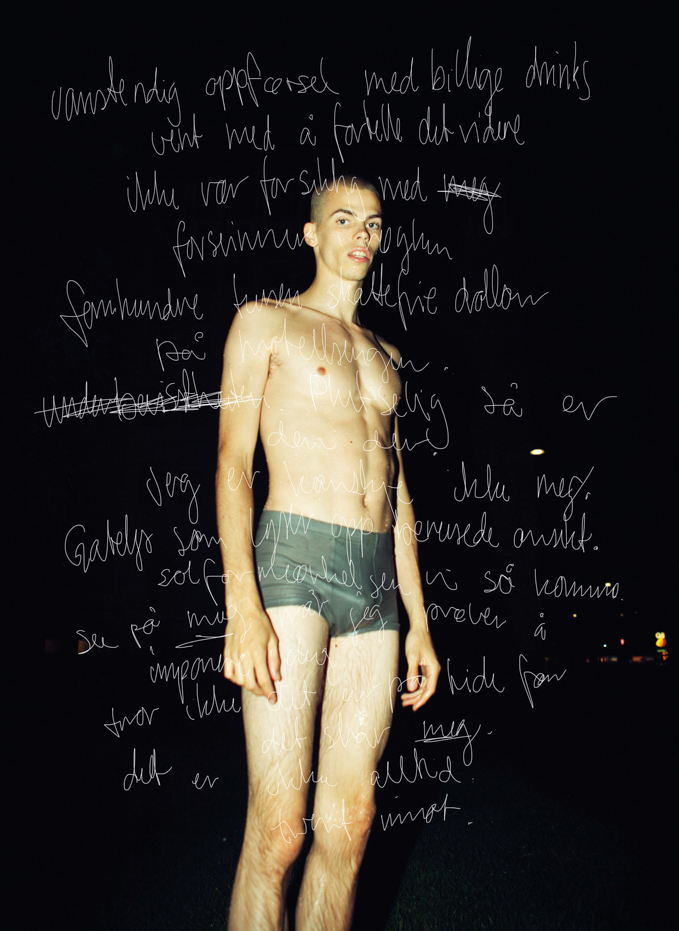 vanstendig oppførsel med billige drinks
vent med å fortelle det videre
ikke vær forsiktig med meg
forsvinner
femhundre tusen skattefrie dollar
på hotellsengen.
Plutselig så er
den der!
Jeg er kanskje ikke meg.
Gatelys som lyser opp berusede ansikt.
solformørkelsen vi så komme.
se på meg når jeg prøver å
imponere
tror ikke det er på side før
det slår meg.
det er ikke alltid